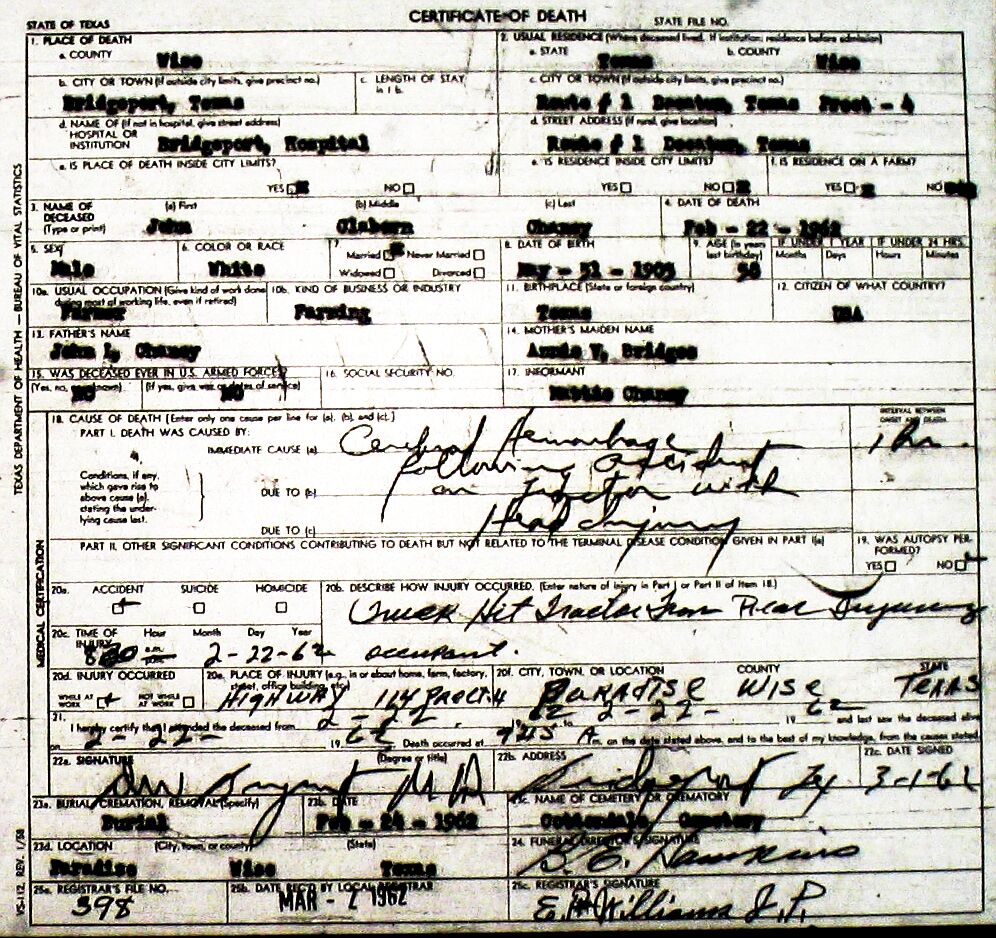 CERTIFICATE OF DEATH
STATE OF TEXAS
STATE FILE NO.
1. PLACE OF DEATH
a. COUNTY
Wise
2. USUAL RESIDENCE (Where deceased lived. If institution: residence before admission)
a. STATE
Texas
b. COUNTY
Wise
b. CITY OR TOWN (If outside city limits, give precinct no.)
Bridgeport, Texas
c. LENGTH OF STAY in 1 b.
c. CITY OR TOWN (If outside city limits, give precinct no.)
Route # 1 Decatur, Texas Prect - 4
d. NAME OF (If not in hospital, give street address) HOSPITAL OR INSTITUTION
Bridgeport, Hospital
d. STREET ADDRESS (If rural, give location)
Route # 1 Decatur, Texas
e. IS PLACE OF DEATH INSIDE CITY LIMITS?
YES X NO
e. IS RESIDENCE INSIDE CITY LIMITS?
YES NO X
f. IS RESIDENCE ON A FARM?
YES X NO
3. NAME OF DECEASED (Type or print)
(a) First
John
(b) Middle
Claborn
(c) Last
Chaney
4. DATE OF DEATH
Feb - 22 - 1962
5. SEX
Male
6. COLOR OR RACE
White
7. Married X Never Married
Widowed Divorced
8. DATE OF BIRTH
May - 31 - 1903
9. AGE (In years last birthday)
58
IF UNDER 1 YEAR
Months Days
IF UNDER 24 HRS.
Hours Minutes
10a. USUAL OCCUPATION (Give kind of work done during most of working life, even if retired)
Farmer
10b. KIND OF BUSINESS OR INDUSTRY
Farming
11. BIRTHPLACE (State or foreign country)
Texas
12. CITIZEN OF WHAT COUNTRY?
USA
13. FATHER'S NAME
John L, Chaney
14. MOTHER'S MAIDEN NAME
Annie V, Bridges
15. WAS DECEASED EVER IN U.S. ARMED FORCES?
(Yes, no, or unknown)
NO
(If yes, give war or dates of service)
NO
16. SOCIAL SECURITY NO.
17. INFORMANT
Mattie Chaney
18. CAUSE OF DEATH [Enter only one cause per line for (a), (b), and (c).]
PART I. DEATH WAS CAUSED BY:
IMMEDIATE CAUSE (a)
Cerebral Hemorrhage
INTERVAL BETWEEN ONSET AND DEATH
1 hr.
following accident
Conditions, if any, which gave rise to above cause (a), stating the underlying cause last.
DUE TO (b)
on Tractor with
DUE TO (c)
Head injury
PART II. OTHER SIGNIFICANT CONDITIONS CONTRIBUTING TO DEATH BUT NOT RELATED TO THE TERMINAL DISEASE CONDITION GIVEN IN PART I(a)
19. WAS AUTOPSY PERFORMED?
YES NO
20a. ACCIDENT SUICIDE HOMICIDE
20b. DESCRIBE HOW INJURY OCCURRED. (Enter nature of injury in Part I or Part II of item 18.)
Truck Hit Tractor From Rear Injuring
occupant.
20c. TIME OF INJURY
Hour Month Day Year
a.m.
p.m.
2-22-62
20d. INJURY OCCURRED
WHILE AT WORK NOT WHILE AT WORK
20e. PLACE OF INJURY (e.g., in or about home, farm, factory, street, office building, etc.)
HIGHWAY 114 PRECT.4
20f. CITY, TOWN, OR LOCATION
PARADISE
COUNTY
WISE
STATE
TEXAS
21. I hereby certify that I attended the deceased from 2-22, 19 62 to 2-22- 19 62 and last saw the deceased alive
on 2-22- 19 62 Death occurred at 9:25 A m. on the date stated above, and to the best of my knowledge, from the causes stated.
22a. SIGNATURE (Degree or title)
Bryant M D
22b. ADDRESS
Bridgeport Tex
22c. DATE SIGNED
3-1-62
23a. BURIAL, CREMATION, REMOVAL (Specify)
Burial
23b. DATE
Feb - 24 - 1962
23c. NAME OF CEMETERY OR CREMATORY
Cottondale, Cemetery
23d. LOCATION (City, town, or county) (State)
Paradise Wise Texas
24. FUNERAL DIRECTOR'S SIGNATURE
B. C. Hawkins
25a. REGISTRAR'S FILE NO.
398
25b. DATE REC'D BY LOCAL REGISTRAR
MAR - 2 1962
25c. REGISTRAR'S SIGNATURE
Williams J.P.
MEDICAL CERTIFICATION
TEXAS DEPARTMENT OF HEALTH — BUREAU OF VITAL STATISTICS
VS-112, REV. 1/58